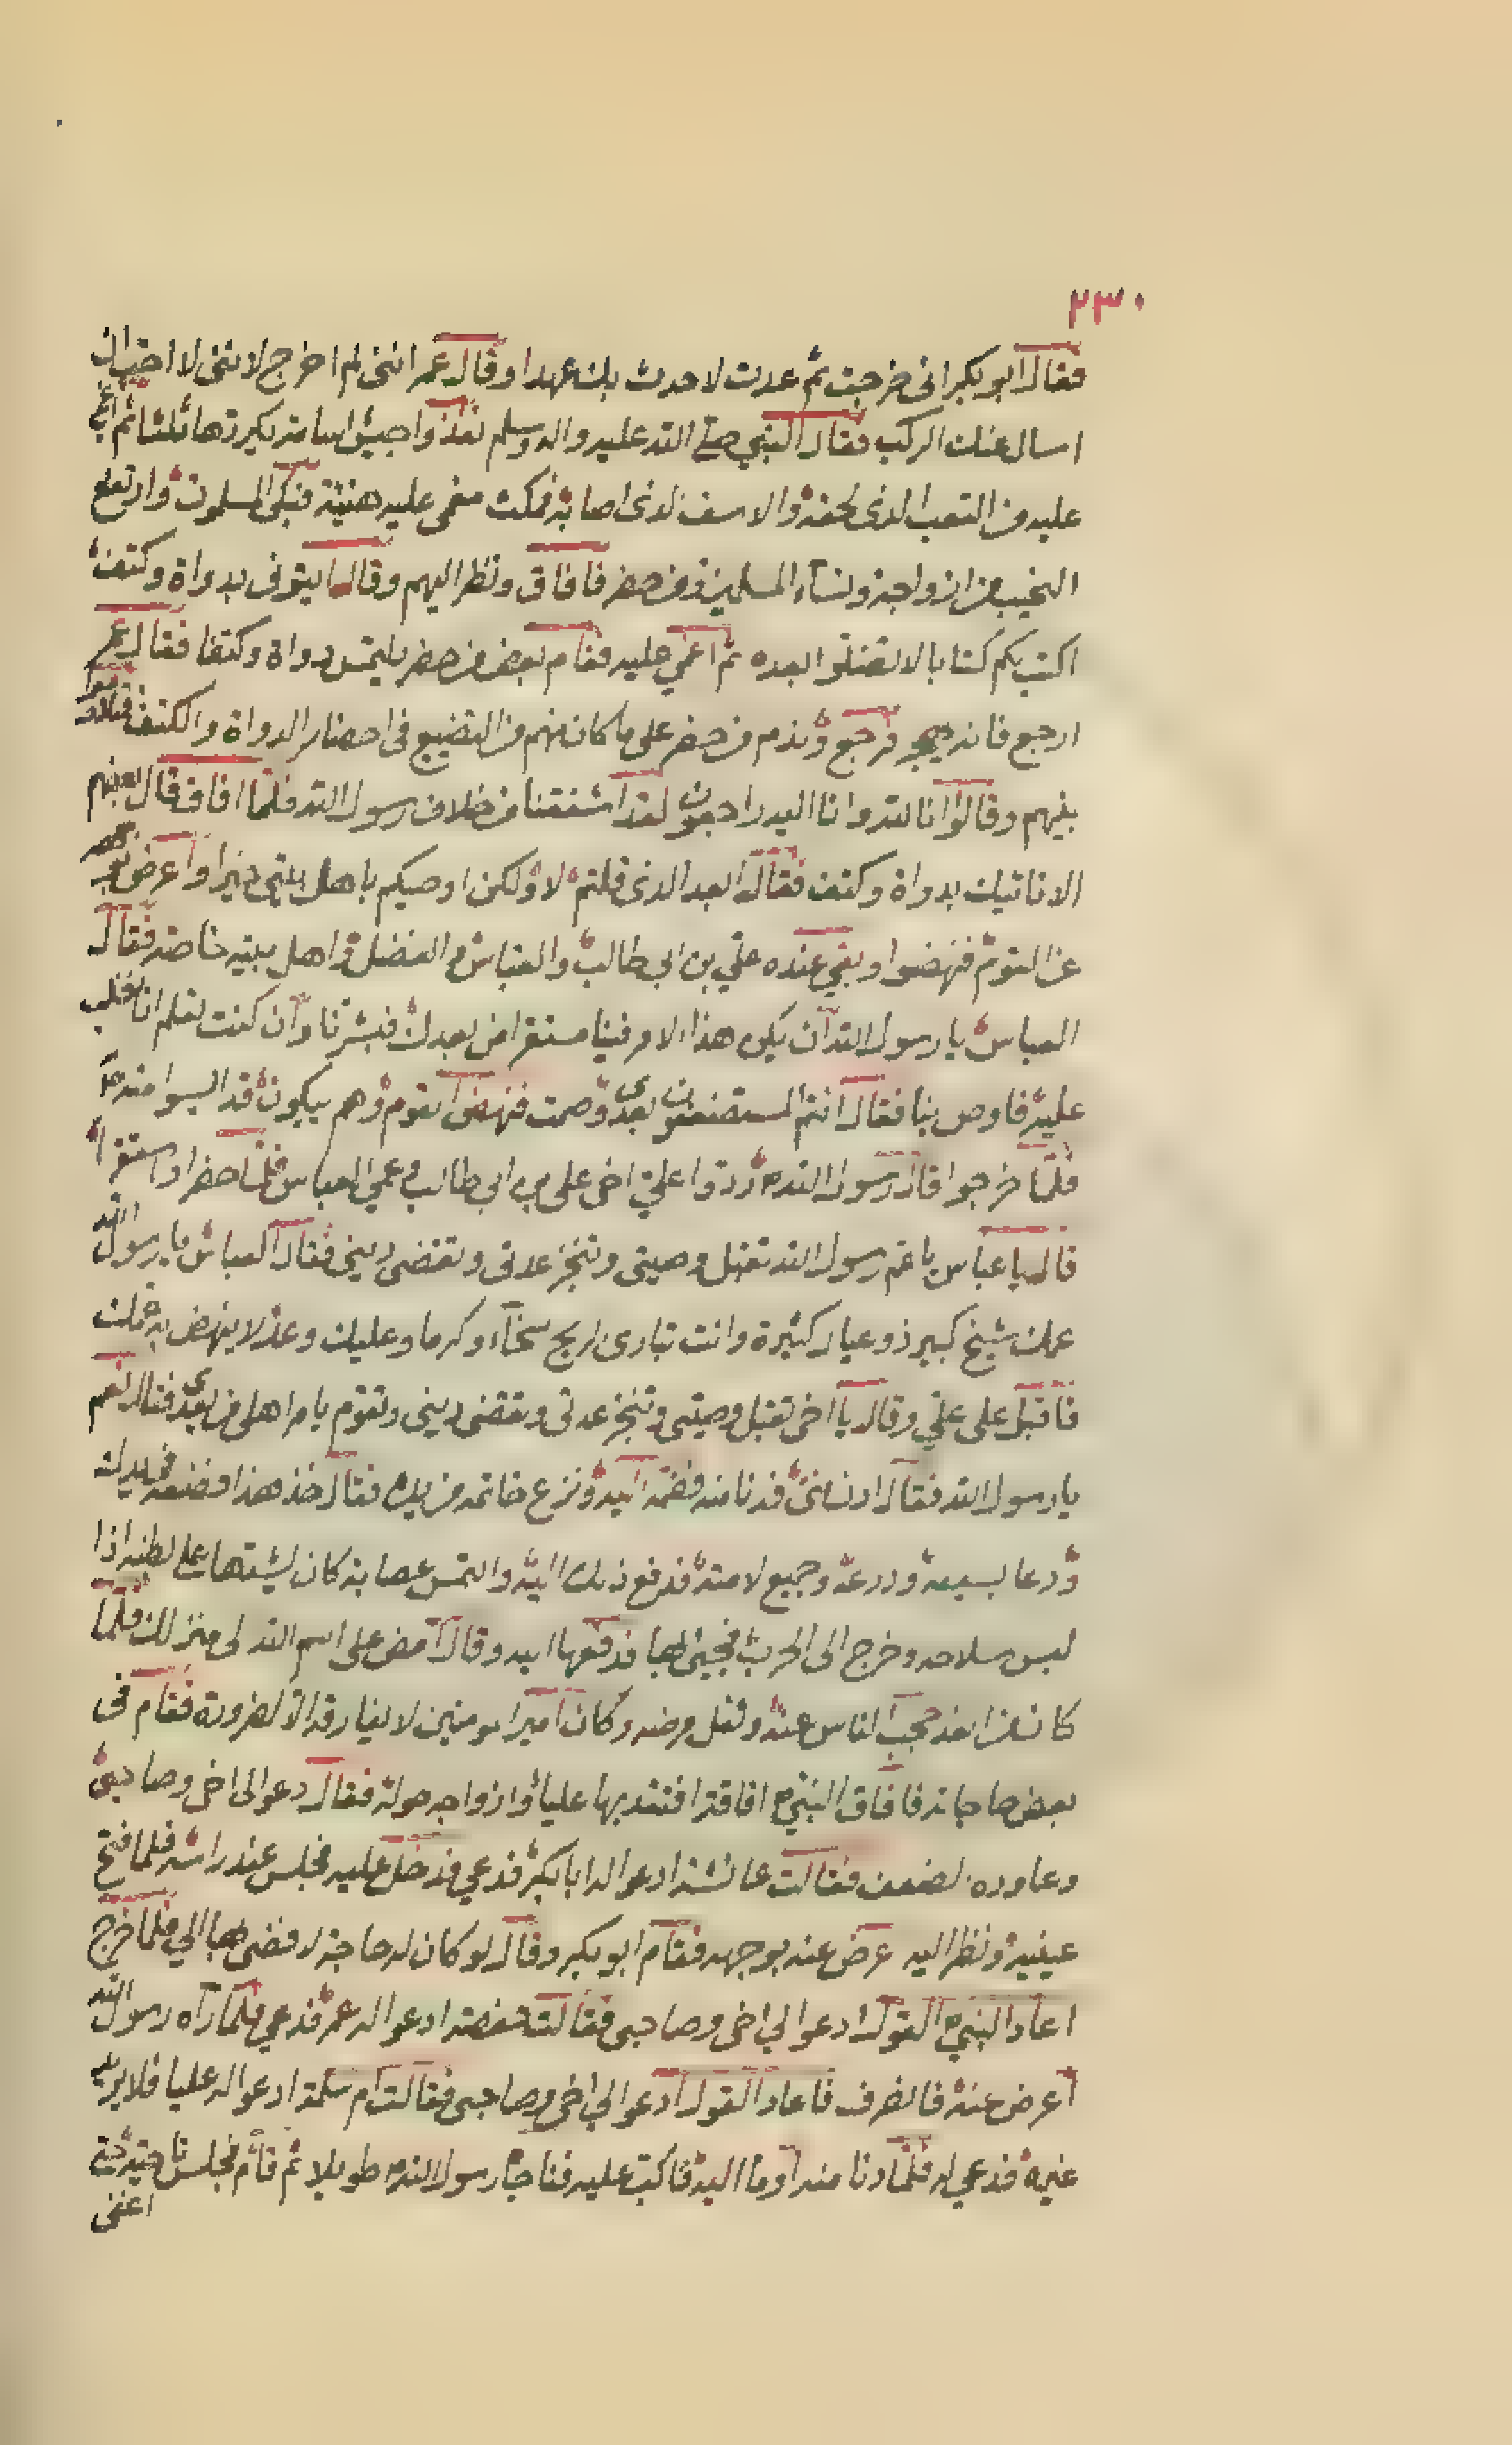 ٢٣٠
فقال ابو بكر انى خرجت ثم عدت لاحدث بك عهدا وقال عمر اننى لم اخرج لاننى لا احب ان
اسال عنك الركب فقال النبي صلى الله عليه واله وسلم نفذوا جيش اسامة يكررها ثلثا ثم اغمي
عليه من التعب الذى لحقه والاسف الذى اصابه فمكث مغمى عليه هنيئة فبكى المسلمون وارتفع
النحيب من ازواجه ونساء المسلمين ومن حضر فافاق ونظر اليهم وقال ايتونى بدواة وكتف
اكتب لكم كتابا لا تضلوا بعده ثم اغمي عليه فقام بعض من حضر يلتمس دواة وكتفا فقال عمر
ارجع فانه يهجر فرجع وندم من حضر على ما كان منهم من التضييع فى احضار الدواة والكتف فتلاوموا
بينهم وقالوا انا لله وانا اليه راجعون لقد اشفقنا من خلاف رسول الله فلما افاق قال بعضهم
الا ناتيك بدواة وكتف فقال ابعد الذى قلتم لا ولكن اوصيكم باهل بيتى خيرا واعرض بوجهه
عن القوم فنهضوا وبقي عنده علي بن ابي طالب والعباس والفضل واهل بيته خاصة فقال
العباس يا رسول الله ان يكن هذا الامر فينا مستقرا من بعدك فبشرنا وان كنت تعلم انا نغلب
عليه فاوص بنا فقال انتم المستضعفون بعدى وصمت فنهض القوم وهم يبكون قد ايسوا منه
فلما خرجوا قال رسول الله ردوا علي اخى على بن ابي طالب وعمي العباس فلما حضرا واستقرا
قال يا عباس يا عم رسول الله تقبل وصيتى وتنجز عدتى وتقضى دينى فقال العباس يا رسول الله
عمك شيخ كبير ذو عيال كثيرة وانت تبارى الريح سخاء وكرما وعليك وعد لا ينهض به عمك
فاقبل على علي وقال يا اخى تقبل وصيتى وتنجز عدتى وتقضى دينى وتقوم بامر اهلى من بعدى فقال نعم
يا رسول الله فقال ادن منى فدنا منه فضمه اليه ونزع خاتمه من يده فقال خذ هذا فضعه فى يدك
ودعا بسيفه ودرعه وجميع لامته فدفع ذلك اليه والتمس عصابة كان يشدها على بطنه اذا
لبس سلاحه وخرج الى الحرب فجيئ بها فدفعها اليه وقال امض على اسم الله الى منزلك فلما
كان من الغد حجب الناس عنه وثقل مرضه وكان امير المومنين لا يفارقه الا لضرورة فقام فى
بعض حاجاته فافاق النبي افاقة افتقد بها عليا وازواجه حوله فقال ادعوا لى اخى وصاحبى
وعاوده الضعف فقالت عائشة ادعوا له ابا بكر فدعي فدخل عليه فجلس عند راسه فلما فتح
عينيه ونظر اليه اعرض عنه بوجهه فقام ابو بكر وقال لو كان له حاجة لافضى بها الي فلما خرج
اعاد النبي القول ادعوا لي اخى وصاحبى فقالت حفصة ادعوا له عمر فدعي فلما رآه رسول الله
اعرض عنه فانصرف فاعاد القول ادعوا لي اخى وصاحبى فقالت ام سلمة ادعوا له عليا فلا يريد
غيره فدعي له فلما دنا منه اوما اليه فاكب عليه فناجاه رسول الله طويلا ثم قام فجلس ناحية حتى
اغفى